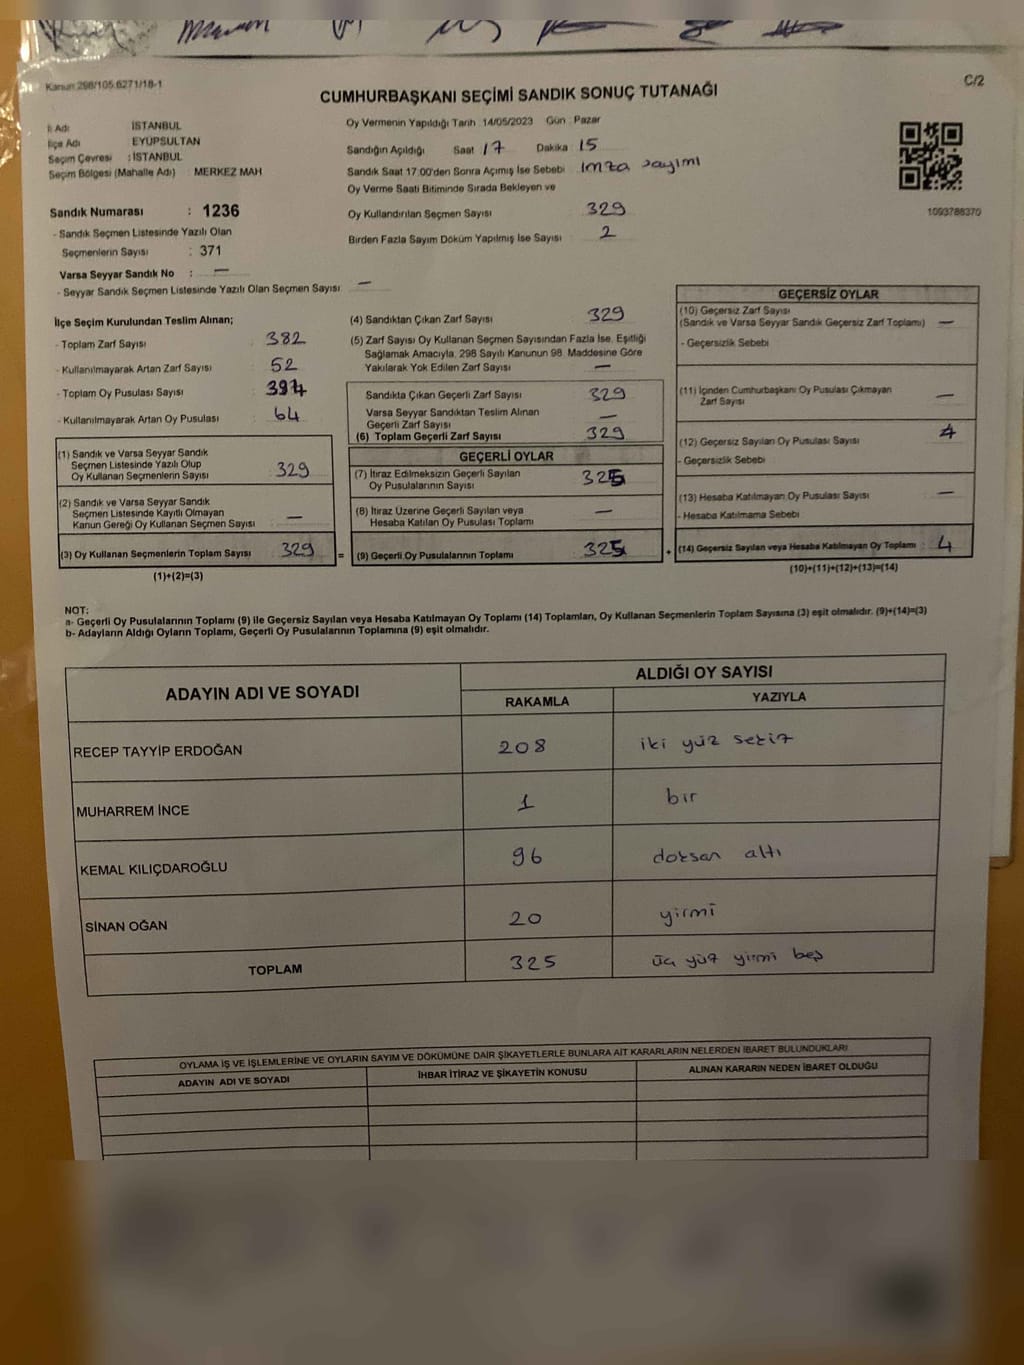 Kanun 298/105 6271/18-1
C/2
CUMHURBAŞKANI SEÇİMİ SANDIK SONUÇ TUTANAĞI
İl Adı İSTANBUL
İlçe Adı EYÜPSULTAN
Seçim Çevresi : İSTANBUL
Seçim Bölgesi (Mahalle Adı) : MERKEZ MAH
Sandık Numarası : 1236
- Sandık Seçmen Listesinde Yazılı Olan
Seçmenlerin Sayısı : 371
Varsa Seyyar Sandık No : —
- Seyyar Sandık Seçmen Listesinde Yazılı Olan Seçmen Sayısı —
Oy Vermenin Yapıldığı Tarih : 14/05/2023 Gün : Pazar
Sandığın Açıldığı Saat 17 Dakika 15
Sandık Saat 17:00'den Sonra Açımış İse Sebebi imza sayımı
Oy Verme Saati Bitiminde Sırada Bekleyen ve
Oy Kullandırılan Seçmen Sayısı 329
Birden Fazla Sayım Döküm Yapılmış İse Sayısı 2
1093788370
İlçe Seçim Kurulundan Teslim Alınan;
- Toplam Zarf Sayısı 382
- Kullanılmayarak Artan Zarf Sayısı 52
- Toplam Oy Pusulası Sayısı
- Kullanılmayarak Artan Oy Pusulası 64
(1) Sandık ve Varsa Seyyar Sandık
Seçmen Listesinde Yazılı Olup
Oy Kullanan Seçmenlerin Sayısı 329
(2) Sandık ve Varsa Seyyar Sandık
Seçmen Listesinde Kayıtlı Olmayan
Kanun Gereği Oy Kullanan Seçmen Sayısı —
(3) Oy Kullanan Seçmenlerin Toplam Sayısı 329 =
(1)+(2)=(3)
(4) Sandıktan Çıkan Zarf Sayısı 329
(5) Zarf Sayısı Oy Kullanan Seçmen Sayısından Fazla İse, Eşitliği
Sağlamak Amacıyla, 298 Sayılı Kanunun 98. Maddesine Göre
Yakılarak Yok Edilen Zarf Sayısı —
Sandıkta Çıkan Geçerli Zarf Sayısı 329
Varsa Seyyar Sandıktan Teslim Alınan
Geçerli Zarf Sayısı —
(6) Toplam Geçerli Zarf Sayısı 329
GEÇERLİ OYLAR
(7) İtiraz Edilmeksizin Geçerli Sayılan
Oy Pusulalarının Sayısı 325
(8) İtiraz Üzerine Geçerli Sayılan veya
Hesaba Katılan Oy Pusulası Toplamı —
(9) Geçerli Oy Pusulalarının Toplamı 325 +
GEÇERSİZ OYLAR
(10) Geçersiz Zarf Sayısı
(Sandık ve Varsa Seyyar Sandık Geçersiz Zarf Toplamı) —
- Geçersizlik Sebebi
(11) İçinden Cumhurbaşkanı Oy Pusulası Çıkmayan
Zarf Sayısı —
(12) Geçersiz Sayılan Oy Pusulası Sayısı 4
- Geçersizlik Sebebi
(13) Hesaba Katılmayan Oy Pusulası Sayısı —
- Hesaba Katılmama Sebebi
(14) Geçersiz Sayılan veya Hesaba Katılmayan Oy Toplamı : 4
(10)+(11)+(12)+(13)=(14)
NOT:
a- Geçerli Oy Pusulalarının Toplamı (9) ile Geçersiz Sayılan veya Hesaba Katılmayan Oy Toplamı (14) Toplamları, Oy Kullanan Seçmenlerin Toplam Sayısına (3) eşit olmalıdır. (9)+(14)=(3)
b- Adayların Aldığı Oyların Toplamı, Geçerli Oy Pusulalarının Toplamına (9) eşit olmalıdır.
ADAYIN ADI VE SOYADI
ALDIĞI OY SAYISI
RAKAMLA YAZIYLA
RECEP TAYYİP ERDOĞAN 208 iki yüz sekiz
MUHARREM İNCE 1 bir
KEMAL KILIÇDAROĞLU 96 doksan altı
SİNAN OĞAN 20 yirmi
TOPLAM 325 üç yüz yirmi beş
OYLAMA İŞ VE İŞLEMLERİNE VE OYLARIN SAYIM VE DÖKÜMÜNE DAİR ŞİKAYETLERLE BUNLARA AİT KARARLARIN NELERDEN İBARET BULUNDUKLARI
ADAYIN ADI VE SOYADI İHBAR İTİRAZ VE ŞİKAYETİN KONUSU ALINAN KARARIN NEDEN İBARET OLDUĞU